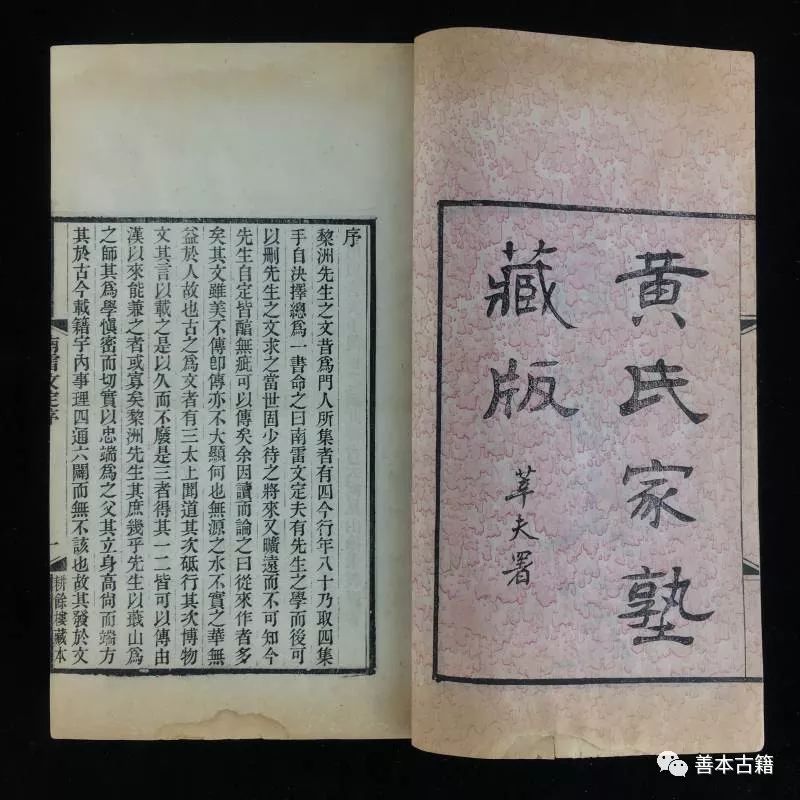 黄氏家塾
藏版
莘夫署
序
黎洲先生之文昔爲門人所集者有四今行年八十乃取四集
手自決擇總爲一書命之曰南雷文定夫有先生之學而後可
以刪先生之文求之當世固少待之將來又曠遠而不可知今
先生自定皆醕無疵可以傳矣余因讀而論之曰從來作者多
矣其文雖美不傳卽傳亦不大顯何也無源之水不實之華無
益於人故也古之爲文者有三太上聞道其次砥行其次博物
文其言以載之是以久而不廢是三者得其一二皆可以傳由
漢以來能兼之者或寡矣黎洲先生其庶幾乎先生以蕺山爲
之師其爲學愼密而切實以忠端爲之父其立身高尙而端方
其於古今載籍宇內事理四通六闢而無不該也故其發於文
南雷文定序
一
耕餘樓藏本
善本古籍